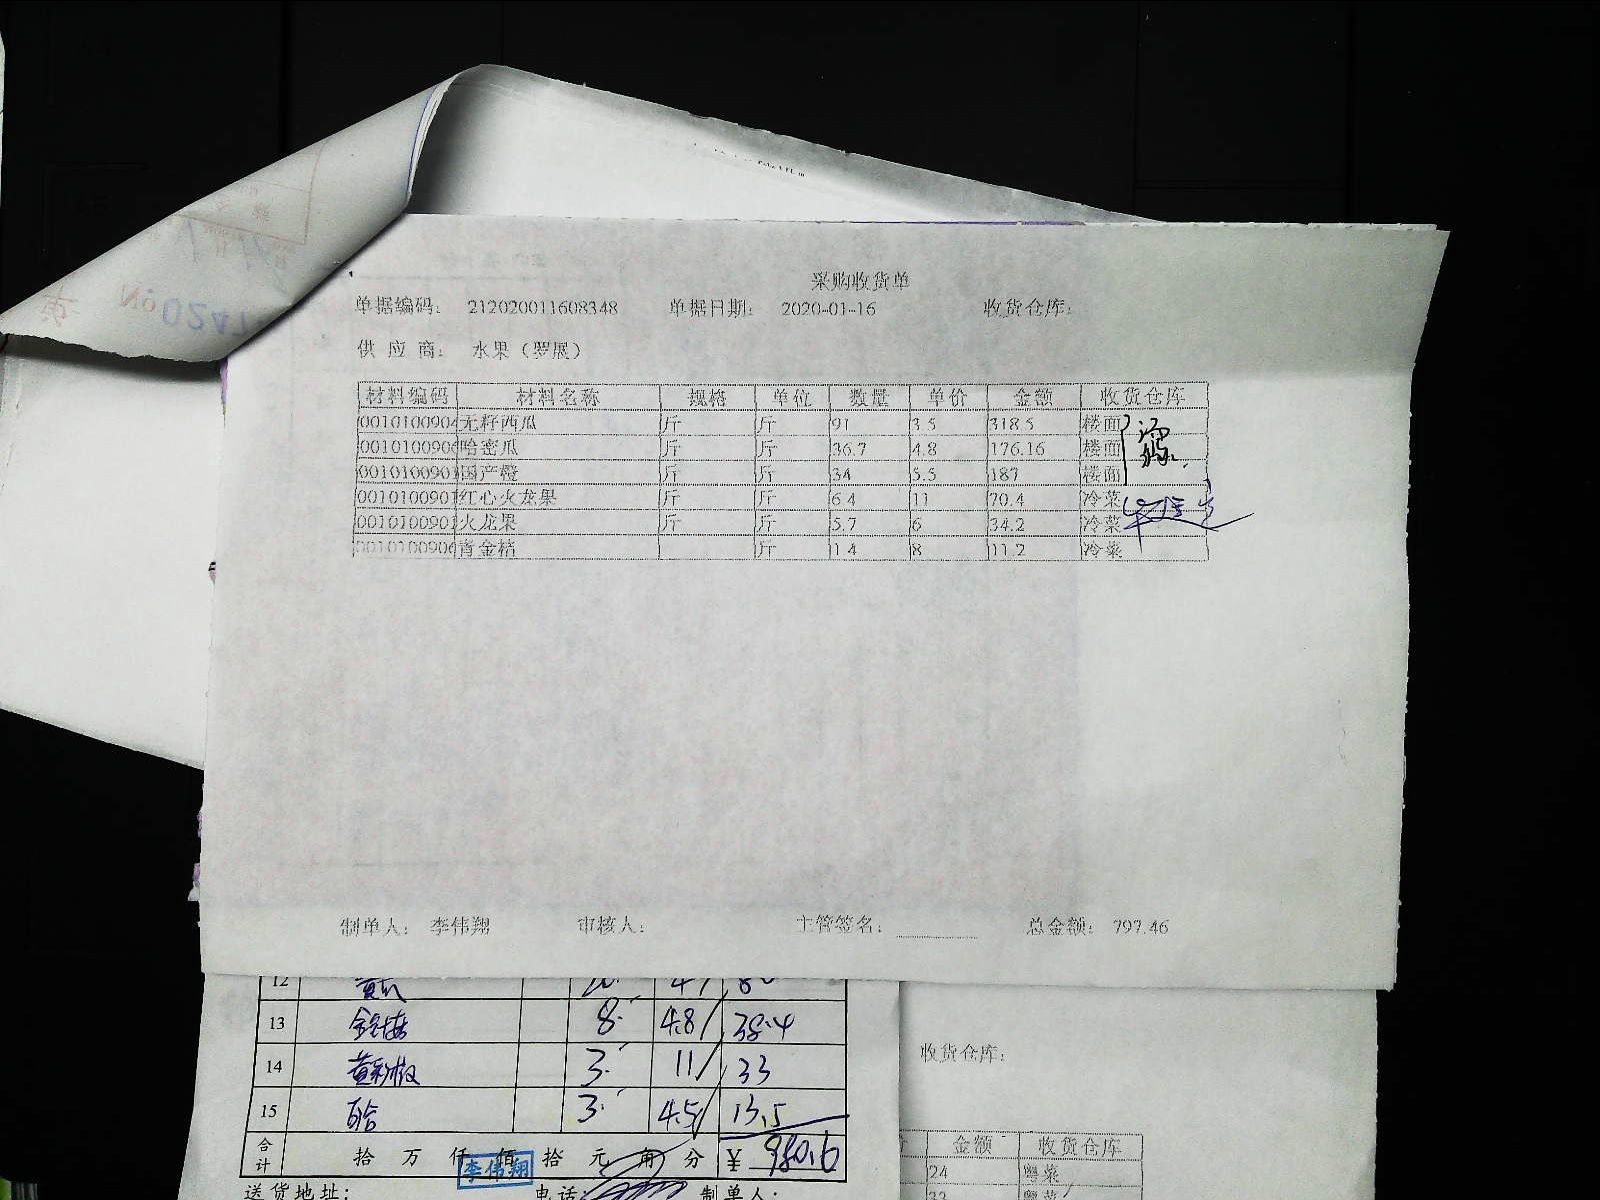 采购收货单
单据编码： 212020011608348 单据日期： 2020-01-16 收货仓库：
供 应 商： 水果（罗展）
材料编码 材料名称 规格 单位 数量 单价 金额 收货仓库
0010100904 无籽西瓜 斤 斤 91 3.5 318.5 楼面
0010100906 哈密瓜 斤 斤 36.7 4.8 176.16 楼面
0010100901 国产橙 斤 斤 34 5.5 187 楼面
0010100901 红心火龙果 斤 斤 6.4 11 70.4 冷菜
0010100901 火龙果 斤 斤 5.7 6 34.2 冷菜
0010100906 青金桔 斤 1.4 8 11.2 冷菜
制单人： 李伟翔 审核人： 主管签名： 总金额： 797.46
12 黄瓜
13 8 4.8 38.4
14 黄彩椒 3 11 33
15 百合 3 4.5 13.5
合计 拾 万 仟 佰 拾 元 角 分 ¥ 980.6
李伟翔
送货地址： 电话： 制单人：
收货仓库：
金额 收货仓库
24 粤菜
32 粤菜
No 0247